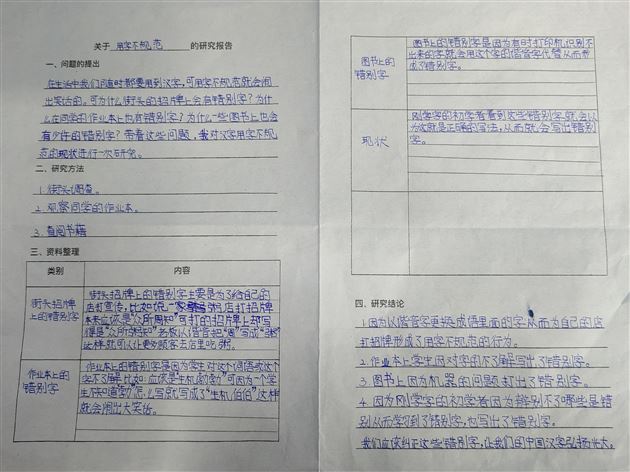 关于 用字不规范 的研究报告
一、问题的提出
在生活中我们随时都要用到汉字,可用字不规范就会闹
出笑话的。可为什么街头的招牌上会有错别字?为什
么在同学的作业本上也有错别字?为什么一些图书上也会
有少许的错别字?带着这些问题,我对汉字用字不规
范的现状进行一次研究。
二、研究方法
1.街头调查。
2.观察同学的作业本。
3.查阅书籍
三、资料整理
类别 内容
街头招牌
上的错别字
街头招牌上的错别字主要是为了给自己的
店打宣传,比如说一家粥店打招牌
本来应该是“众所周知”可打的招牌上却写
得是“众所粥知”老板以谐音把“周”写成“粥”
这样就可以让更多顾客去店里吃粥。
作业本上的
错别字
作业本上的错别字是因为学生对这个词语或这个
字不了解比如:应该是“生机勃勃”可因为一个学
生不知道“勃”怎么写就写成了“生机伯伯”这样
就会闹出大笑话。
图书上的
错别字
图书上的错别字是因为有时打印机识别不
出来的字就会用这个字的谐音字代替从而形
成了错别字。
现状
刚学字的初学者看到这些错别字就会以
为这就是正确的写法,从而就会写出错别
字。
四、研究结论
1.因为以谐音字更换成语里面的字从而为自己的店
打招牌形成了用字不规范的行为。
2.作业本上学生因对字的不了解写出了错别字。
3.图书上因为机器的问题打出了错别字。
4.因为刚学字的初学者因为辨别不了哪些是错
别从而学习到了错别字,也写出了错别字。
我们应该纠正这些错别字,让我们的中国汉字弘扬光大。